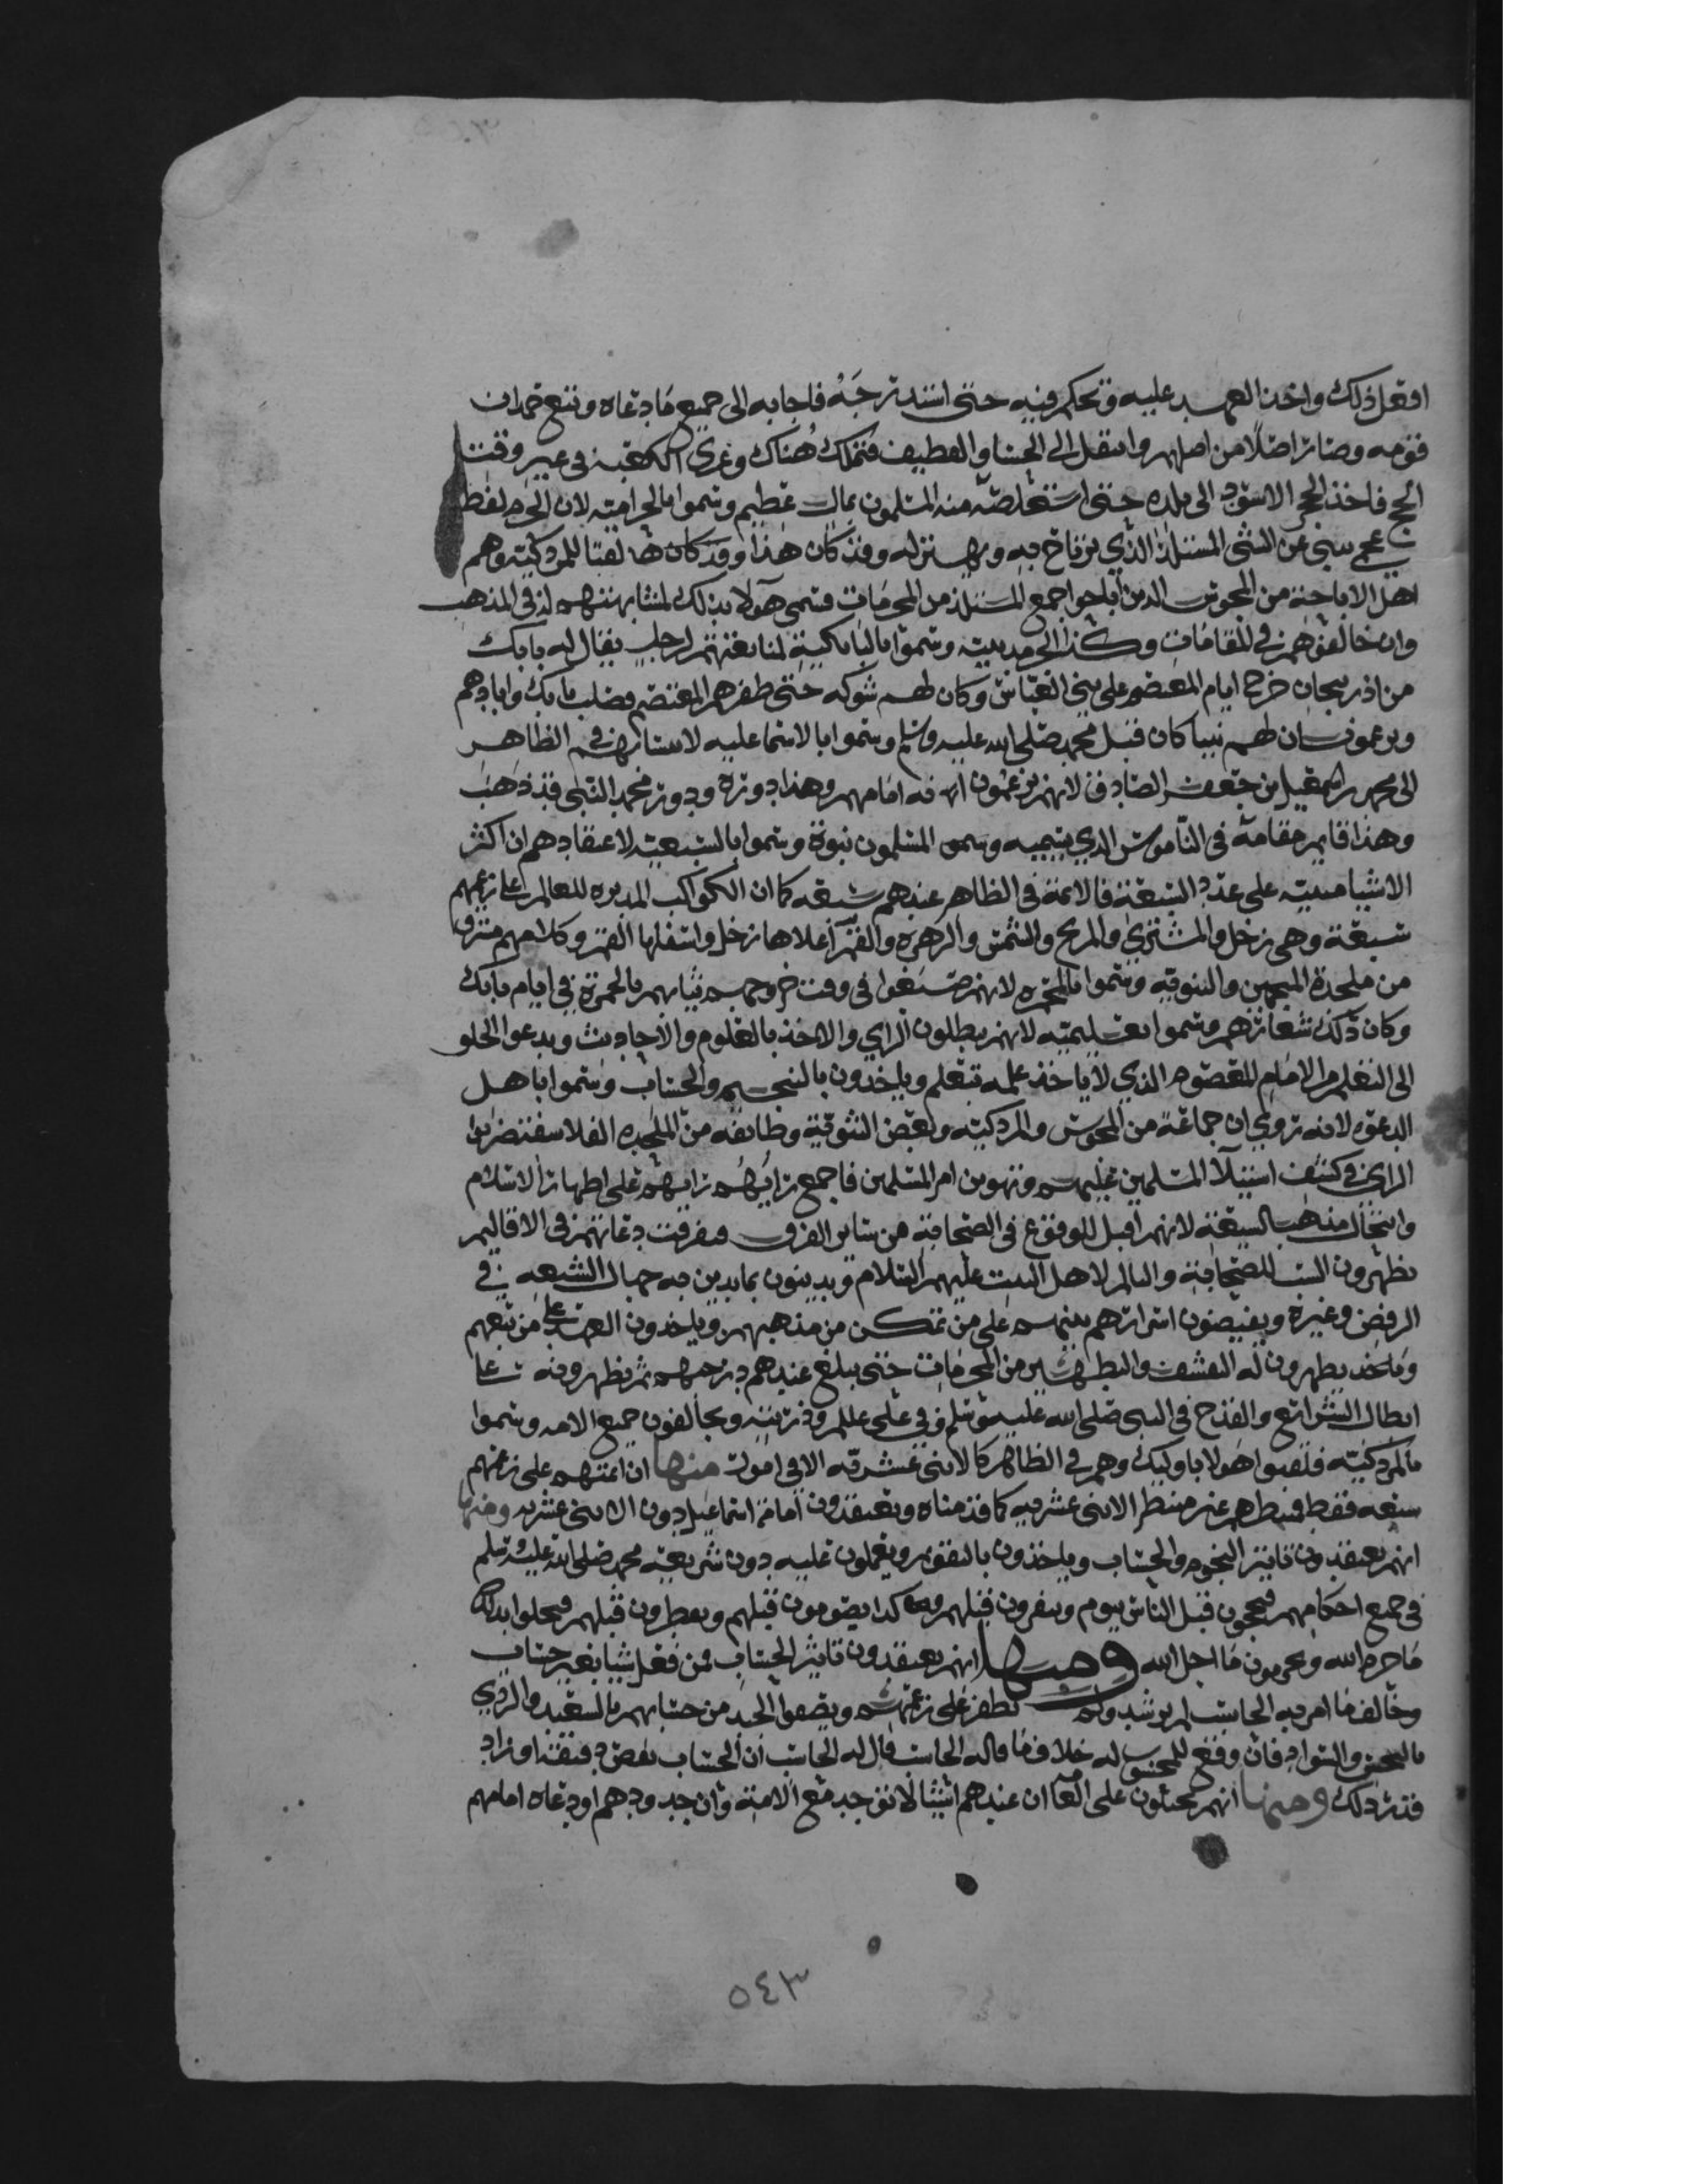 افعل ذلك واخذ العهد عليه وتحكم فيه حتى استدرجه فاجابه الى جميع ما دعاه وتبع حمدان
قومه وصار اصلا من اصلهم وانتقل الى الحسا والقطيف فتملك هناك وغزى الكعبة في غير وقت
الحج فاخذ الحجر الاسود الى بلده حتى استخلصه منه المسلمون بمال عظيم وسموا بالخرامية لان الخرم لفظ
عجمي يبنى عن الشى المستلذ الذي يرتاح به ويهتز له وقد كان هذا وقد كان هذا لقبا للمزدكية وهم
اهل الاباحة من المجوس الذين اباحوا جميع المستلذ من المحرمات فسمى هولا بذلك لمشابهتهم لهم في المذهب
وان خالفوهم في المقامات وكذا الخرمدينية وسموا بالبابكية لمتابعتهم لرجل يقال له بابك
من اذربيجان خرج ايام المعتصم على بني العباس وكان لهم شوكه حتى ظفرهم المعتصم فصلب بابك وابادهم
ويزعمون ان لهم نبيا كان قبل محمد صلى الله عليه وسلم وسموا بالاسماعليه لانتسابهم في الظاهر
الى محمد بن اسمعيل بن جعفر الصادق لانهم يزعمون انه امامهم وهذا دوره ودور محمد النبي قد ذهب
وهذا قايم مقامه في الناموس الذي يسميه المسلمون نبوة وسموا بالسبعية لاعتقادهم ان اكثر
الاشيا مبنية على عدد السبعة فالائمة في الظاهر عندهم سبعه كما ان الكواكب المدبره للعالم على زعمهم
سبعة وهي زحل والمشتري والمريخ والشمس والزهره والقمر اعلاها زحل واسفلها القمر وكلامهم مسترق
من ملحدة المنجمين والثنوية وسموا بالمحمره لانهم صبغوا في وقت خروجهم ثيابهم بالحمرة في ايام بابك
وكان ذلك شعارهم وسموا تعليمية لانهم يبطلون الراي والاخذ بالعلوم والاحاديث ويدعوا الخلق
الى التعلم من الامام المعصوم الذي لا ياخذ علمه بتعلم وياخذون بالنجوم والحساب وسموا باهل
الدعوه لانه تروى ان جماعة من المجوس والمزدكية وبعض الثنوية وطائفه من الملحده الفلاسفه ضربوا
الراي في كشف استيلا المسلمين عليهم وتهوين امر المسلمين فاجمع رايهم على اظهار الاسلام
وانتحال مذهب الشيعة لانهم اقبل للوقوع في الصحابة من ساير الفرق وفرقت دعاتهم في الاقاليم
يظهرون السب للصحابة والتالم لاهل البيت عليهم السلام ويدينون بما يدين به جهال الشيعه في
الرفض وغيره ويفيضون اسرارهم على من تمكن من مذهبهم وياخذون العهد على من تبعهم
يظهرون له التقشف والتطهير من المحرمات حتى يبلغ عندهم درجه ثم يظهرونه على
ابطال الشرائع والقدح في النبي صلى الله عليه وسلم وفي علي وذريته ويخالفون جميع الامه وسموا
بالمزدكية فلقبوا هولا باوليك وهم في الظاهر كالاثنى عشريه الا في امور منها ان ائمتهم على زعمهم
سبعه فقط فمنتظرهم غير منتظر الاثنى عشريه كما قدمناه ويعتقدون امامة اسماعيل دون الاثنى عشريه ومنها
انهم يعتقدون تاثير النجوم والحساب وياخذون بالتقويم ويعملون عليه دون شريعة محمد صلى الله عليه وسلم
في جميع احكامهم فيحجون قبل الناس بيوم وينفرون قبلهم وهكذا يصومون قبلهم ويفطرون قبلهم فيحلوا بذلك
ما حرم الله ويحرمون ما احل الله ومنها انهم يعتقدون تاثير الحساب فمن فعل شيا بغير حساب
وخالف ما امر به الحاسب لم يرشد ولم يظفر على زعمهم ويصفوا الجيد من حسابهم بالسعيد والردي
بالنحس والسواد فان وقع للمحسوب له خلاف ما قاله الحاسب قال له الحاسب ان الحساب نقص او زاد
ومنها انهم يحيلون على العامه ان عندهم اشيا لا توجد مع الامة وان حدودهم او دعاه امامهم
٥٤٣